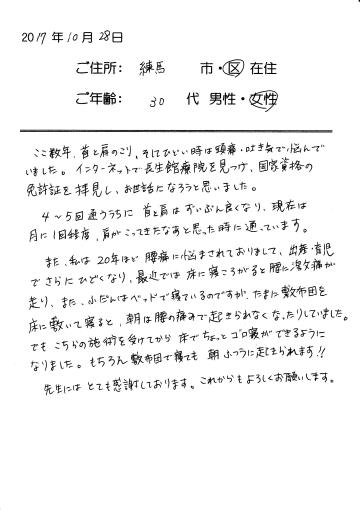 2017年10月28日
ご住所: 練馬 市・区 在住
ご年齢: 30 代 男性・女性
ここ数年、首と肩のこり、そしてひどい時は頭痛・吐き気で悩んで
いました。インターネットで長生館療院を見つけ、国家資格の
免許証を拝見し、お世話になろうと思いました。
4〜5回通ううちに首と肩はずいぶん良くなり、現在は
月に1回程度、肩がこってきたなあと思った時に通っています。
また、私は20年ほど腰痛に悩まされておりまして、出産・育児
でさらにひどくなり、最近では床に寝ころがると腰に激痛が
走り、また、ふだんはベッドで寝ているのですが、たまに敷布団を
床に敷いて寝ると、朝は腰の痛みで起きられなくなったりしていました。
でもこちらの施術を受けてから床でちょっとゴロ寝ができるように
なりました。もちろん敷布団で寝ても朝ふつうに起きられます!!
先生にはとても感謝しております。これからもよろしくお願いします。